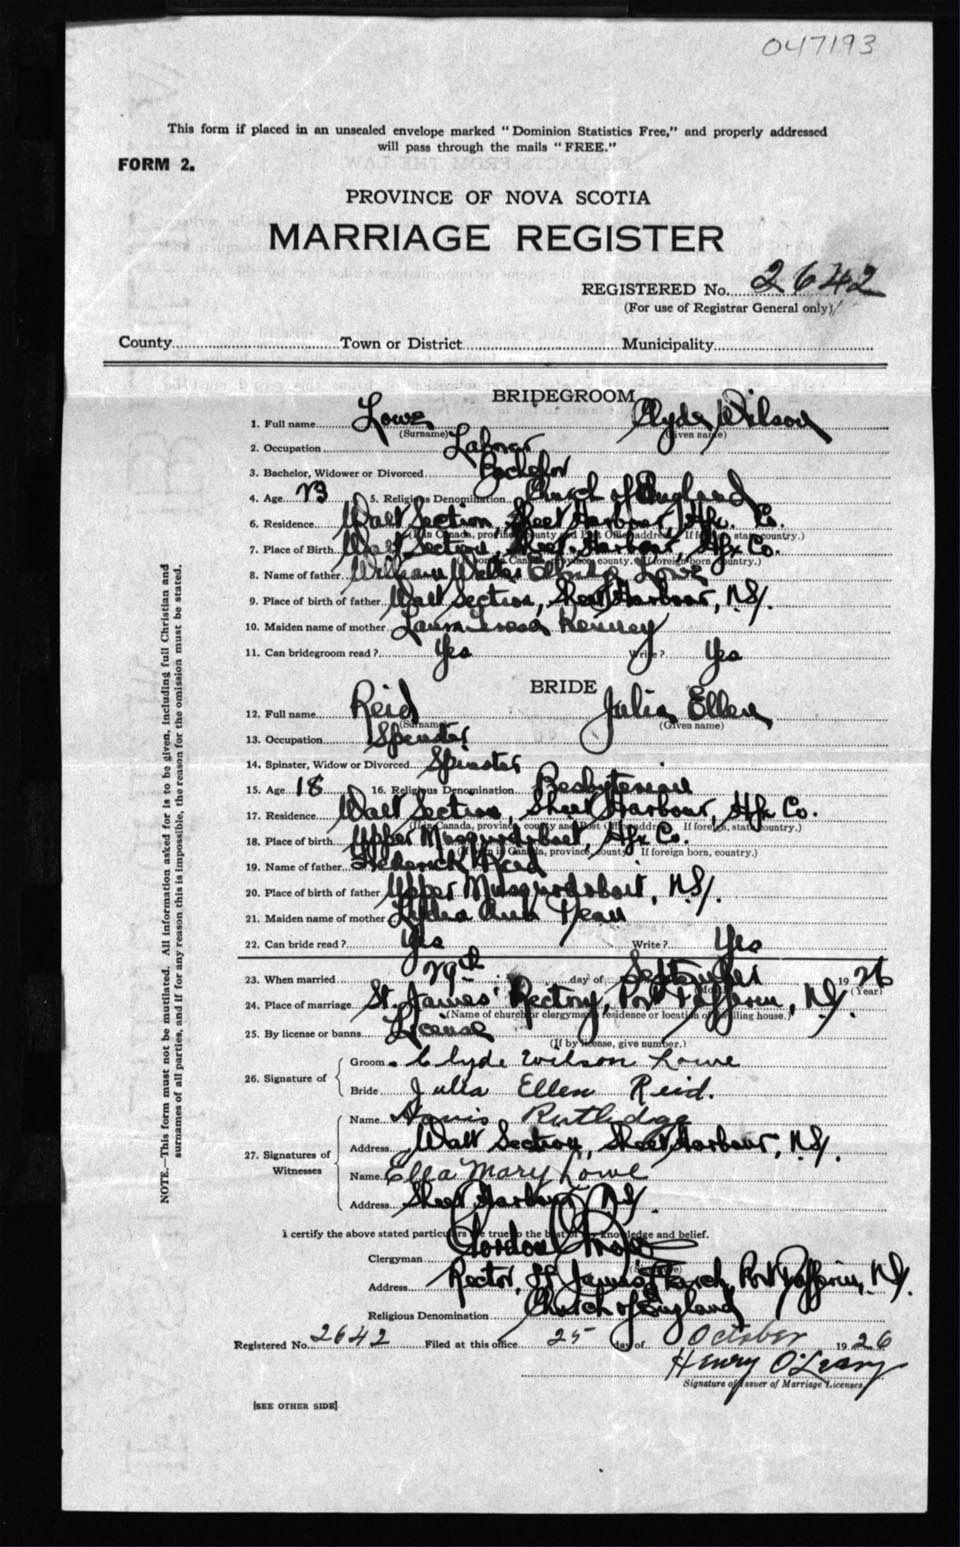 047193
This form if placed in an unsealed envelope marked "Dominion Statistics Free," and properly addressed
will pass through the mails "FREE."
FORM 2.
PROVINCE OF NOVA SCOTIA
MARRIAGE REGISTER
REGISTERED No. 2642
(For use of Registrar General only)
County Town or District Municipality
BRIDEGROOM
1. Full name Lowe Clyde Wilson
(Surname) (Given name)
2. Occupation Laborer
3. Bachelor, Widower or Divorced Bachelor
4. Age 23 5. Religious Denomination Church of England
6. Residence Watt Section, Sheet Harbour, Hfx. Co.
7. Place of Birth Watt Section, Sheet Harbour, Hfx Co.
8. Name of father William Walter Lowe
9. Place of birth of father Watt Section, Sheet Harbour, N.S.
10. Maiden name of mother Laura Kenney
11. Can bridegroom read? Yes Write? Yes
BRIDE
12. Full name Reid Julia Ellen
(Surname) (Given name)
13. Occupation Spinster
14. Spinster, Widow or Divorced Spinster
15. Age 18 16. Religious Denomination Presbyterian
17. Residence Watt Section, Sheet Harbour, Hfx Co.
(If in Canada, province, county and Post Office address. If foreign, state country.)
18. Place of birth Upper Musquodoboit, Hfx Co.
(If born in Canada, province, county. If foreign born, country.)
19. Name of father Frederick Reid
20. Place of birth of father Upper Musquodoboit, N.S.
21. Maiden name of mother Lydia Ann Dean
22. Can bride read? Yes Write? Yes
23. When married 29th day of September 1926
(Year)
24. Place of marriage St. James' Rectory, Port Dufferin, N.S.
(Name of church or clergyman's residence or location of dwelling house.)
25. By license or banns License
(If by license, give number.)
26. Signature of Groom Clyde Wilson Lowe
Bride Julia Ellen Reid.
27. Signatures of Witnesses Name Rutledge
Address Watt Section, Sheet Harbour, N.S.
Name Ella Mary Lowe
Address Sheet Harbour N.S.
I certify the above stated particulars are true to the best of my knowledge and belief.
Clergyman Gordon
Address Rector, St James' Church, Port Dufferin, N.S.
Religious Denomination Church of England
Registered No. 2642 Filed at this office 25 day of October 1926
Henry O'Leary
Signature of Issuer of Marriage Licenses
[SEE OTHER SIDE]
NOTE.—This form must not be mutilated. All information asked for is to be given, including full Christian and
surnames of all parties, and if for any reason this is impossible, the reason for the omission must be stated.